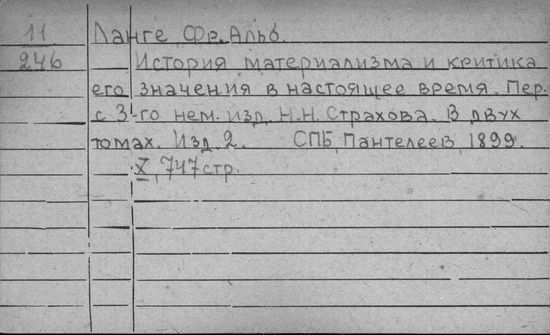 11 Ланге, Фр. Альб.
246 История материализма и критика
его значения в настоящее время. Пер.
с 3-го нем. изд. Н.Н. Страхова. В двух
томах. Изд. 2. СПБ, Пантелеев, 1899.
X, 747 стр.